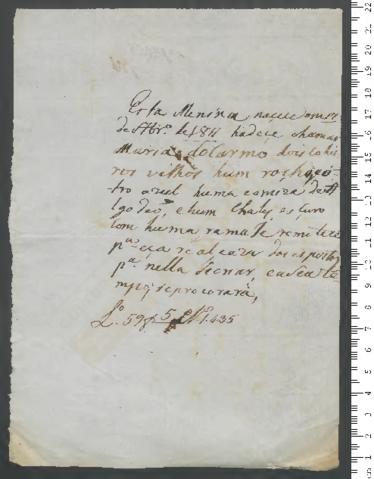 Esta Menina naceo em 17
de 7br.o de 1811 hadeçe chamar
Maria do Carmo dois Cohi
ros velhos hum roxo e o
tro azul huma camiza de Al
godão, e hum Chale escuro
com huma rama Se remete
p.a eça rial caza dos espostos
p.a nella Se criar, e a Seu te
mpo Se procurará,
L.o 59 f 5 N.o 1.435